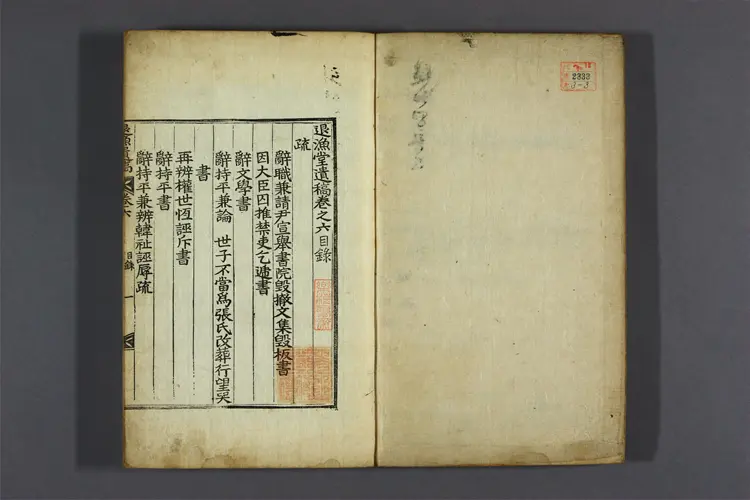 退漁堂遺稿卷之六目錄
疏
辭職兼請尹宣擧書院毀撤文集毀板書
因大臣囚推禁吏乞遞書
辭文學書
辭持平兼論 世子不當爲張氏改葬行望哭
書
再辨權世恆誣斥書
辭持平書
辭持平兼辨韓祉誣辱疏
卷六
目錄
一
2333
3-3